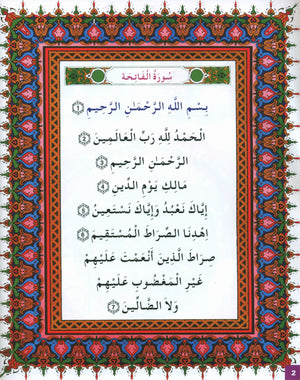 سُورَةُ الْفَاتِحَةِ
بِسْمِ اللَّهِ الرَّحْمَـٰنِ الرَّحِيمِ ١
الْحَمْدُ لِلَّهِ رَبِّ الْعَالَمِينَ ٢
الرَّحْمَـٰنِ الرَّحِيمِ ٣
مَالِكِ يَوْمِ الدِّينِ ٤
إِيَّاكَ نَعْبُدُ وَإِيَّاكَ نَسْتَعِينُ ٥
اهْدِنَا الصِّرَاطَ الْمُسْتَقِيمَ ٦
صِرَاطَ الَّذِينَ أَنْعَمْتَ عَلَيْهِمْ
غَيْرِ الْمَغْضُوبِ عَلَيْهِمْ
وَلَا الضَّالِّينَ ٧
2